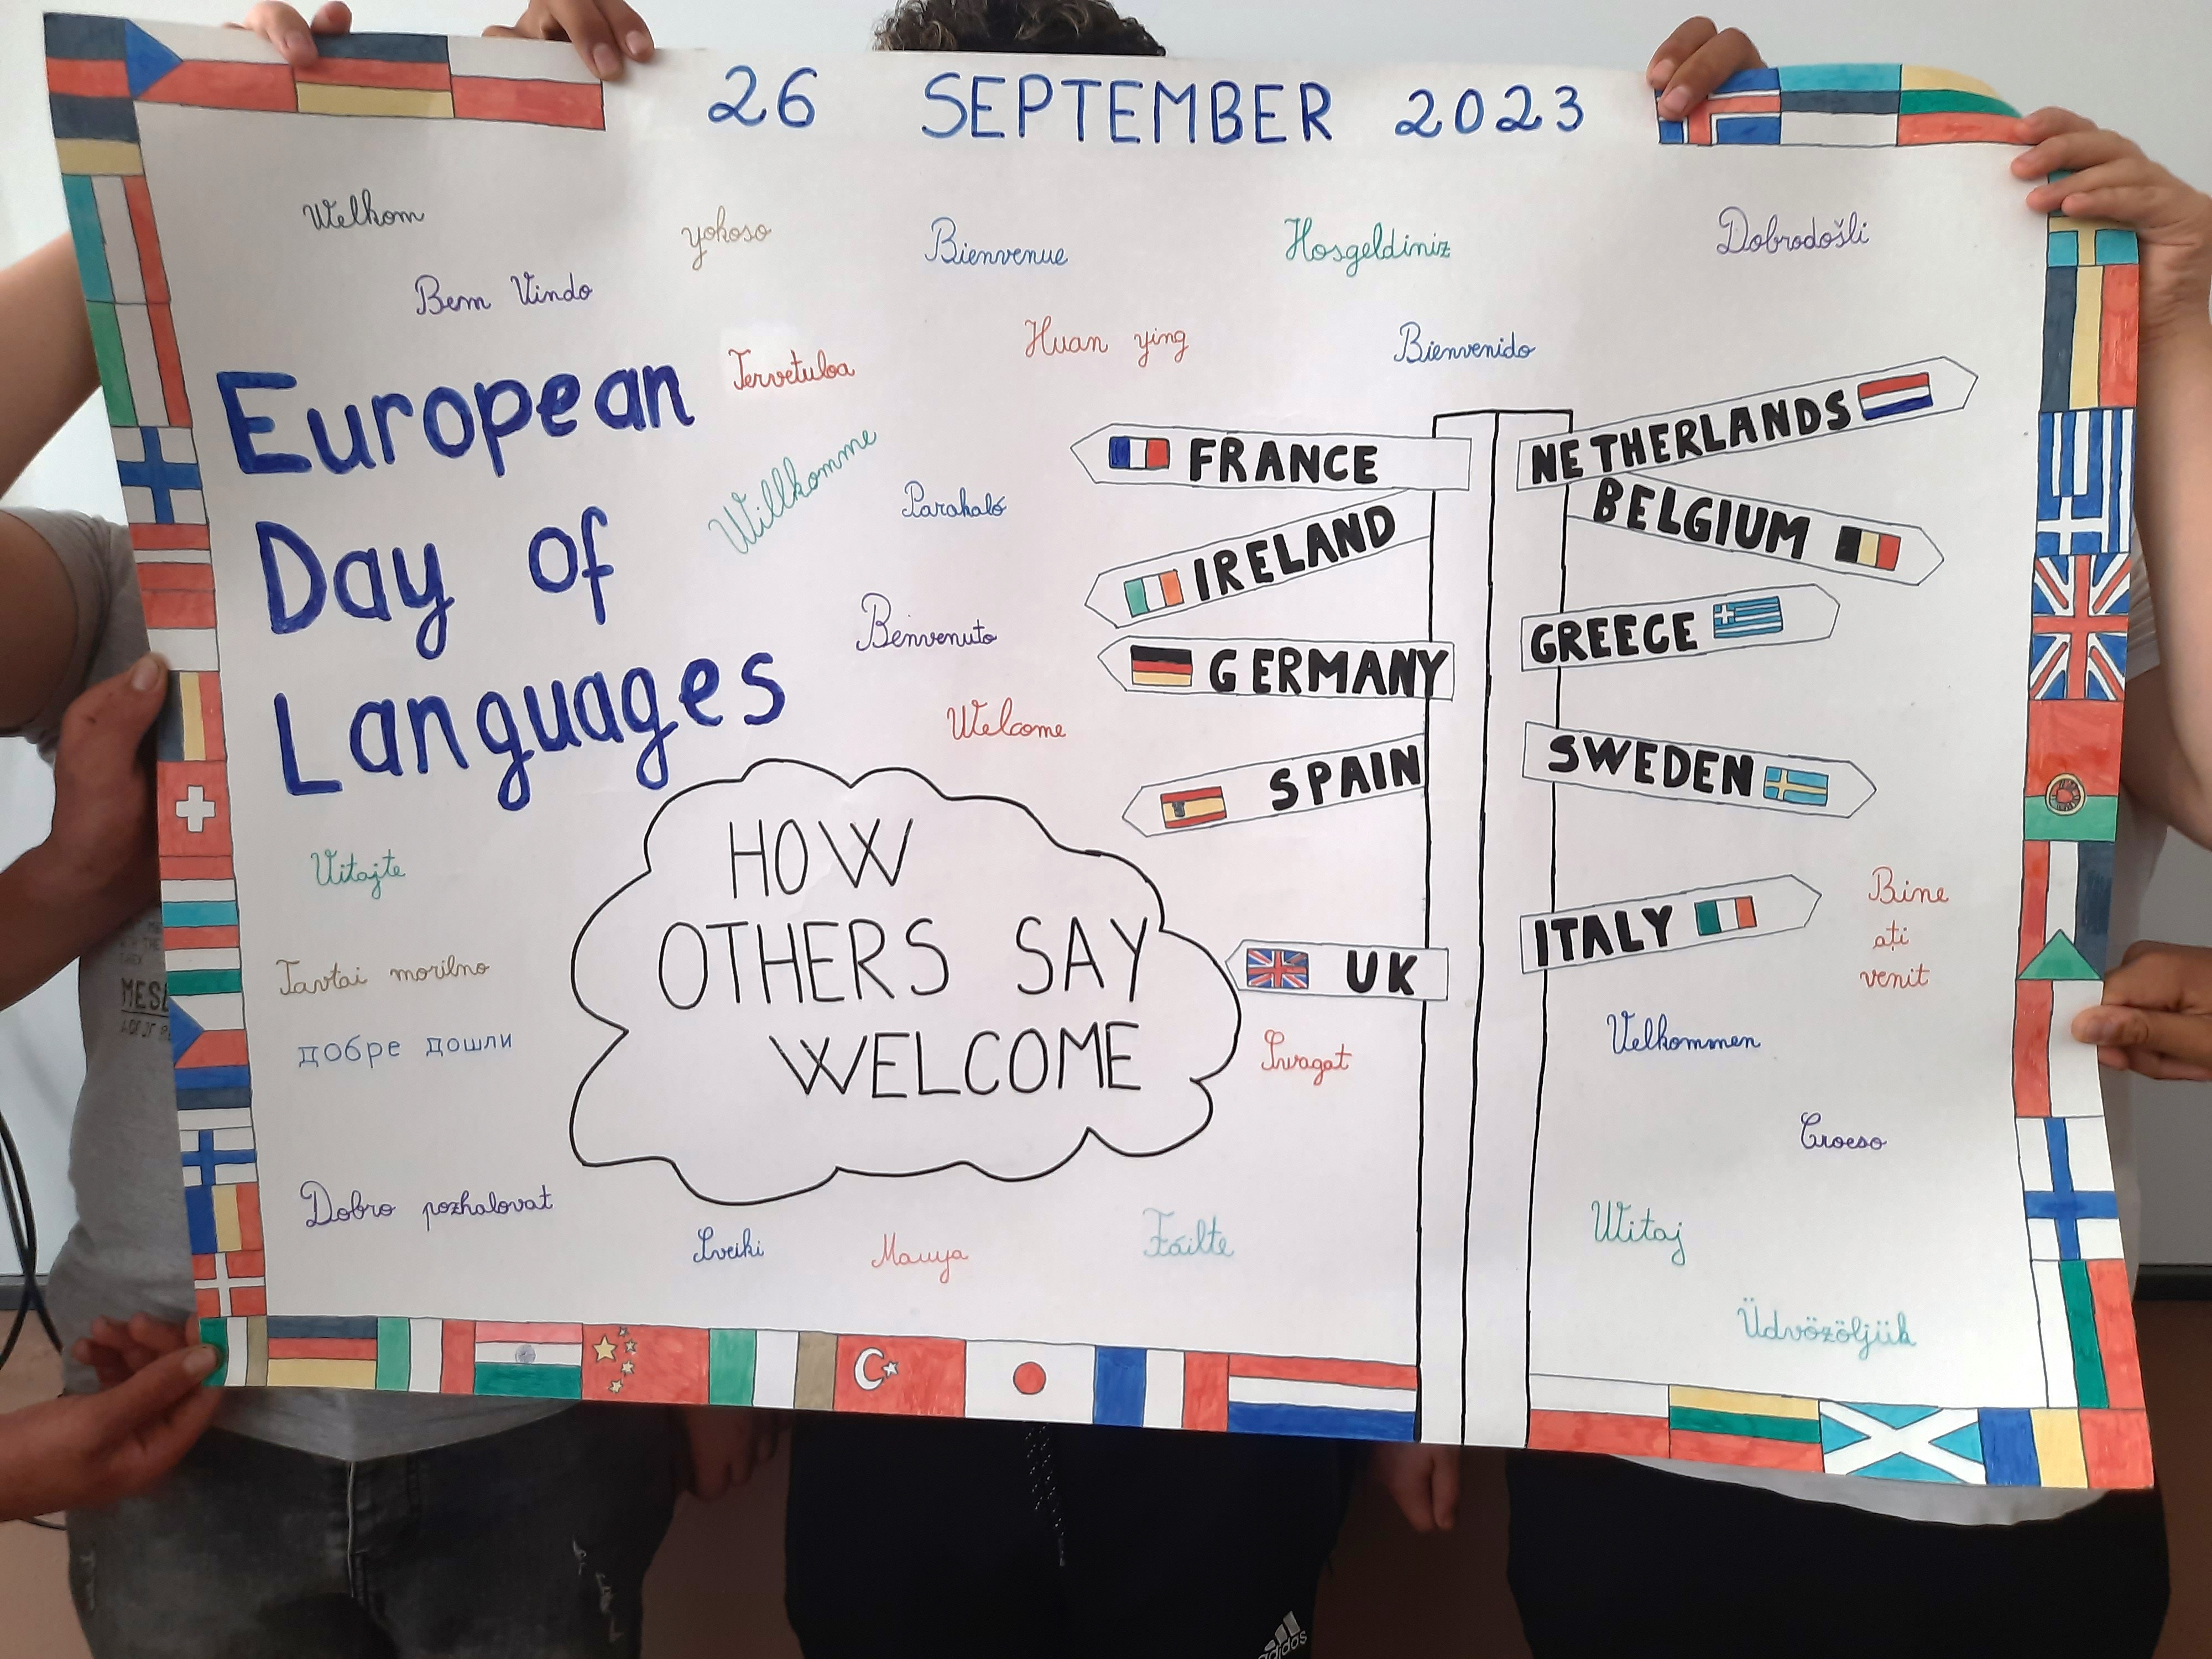 26 SEPTEMBER 2023
Welkom
yokoso
Bienvenue
Hosgeldiniz
Dobrodošli
Bem Vindo
Tervetuloa
Huan ying
Bienvenido
European
Day of
Languages
Willkomme
Parakaló
Benvenuto
Welcome
FRANCE
NETHERLANDS
IRELAND
BELGIUM
GERMANY
GREECE
SPAIN
SWEDEN
UK
ITALY
HOW
OTHERS SAY
WELCOME
Vitajte
Tavtai morilno
добре дошли
Dobro pozhalovat
Sveiki
Failte
Swagat
Bine
ați
venit
Velkommen
Croeso
Witaj
Üdvözöljük
MESL
adidas